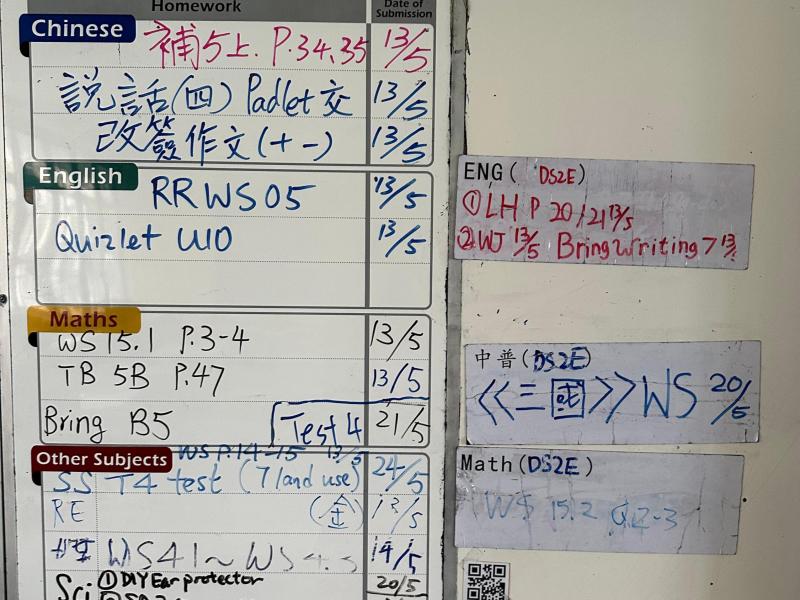 Homework
Date of Submission
Chinese
補5上. P.34,35 13/5
說話(四) Padlet交 13/5
改簽作文(+-) 13/5
English
RRWS05 13/5
Quizlet U10 13/5
Maths
WS 15.1 P.3-4 13/5
TB 5B P.47 13/5
Bring B5 Test 4 21/5
Other Subjects
WS P.14-15 13/5
SS T4 test (7 land use) 24/5
RE (金) 13/5
WS4.1~WS4. 14/5
Sci ①DIY Ear protector 20/5
ENG( DS2E)
①LH P 20/21 13/5
②WJ 13/5 Bring Writing 7 13
中普(DS2E)
<<三國>>WS 20/5
Math(DS2E)
WS 15.2 Q2-3